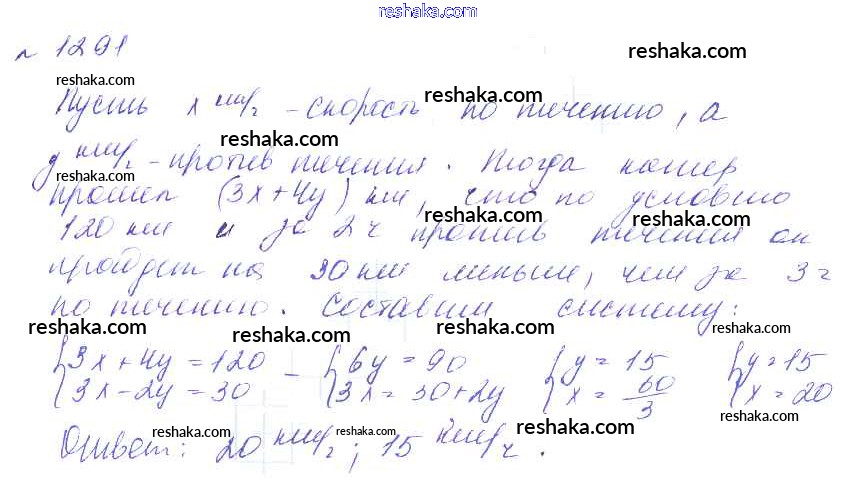 reshaka.com
№ 1291
reshaka.com
reshaka.com
reshaka.com
Пусть x км/ч - скорость по течению, а
reshaka.com
y км/ч - против течения. Тогда катер
reshaka.com
reshaka.com
прошел (3x+4y) км, что по условию
reshaka.com
120 км и за 2 ч против течения он
пройдет на 30 км меньше, чем за 3 ч
по течению. Составим систему:
reshaka.com
reshaka.com
reshaka.com
reshaka.com
{3x+4y=120 {6y=90 {y=15 {y=15
{3x-2y=30 - {3x=30+2y {x=60/3 {x=20
reshaka.com
reshaka.com
reshaka.com
reshaka.com
Ответ: 20 км/ч; 15 км/ч.